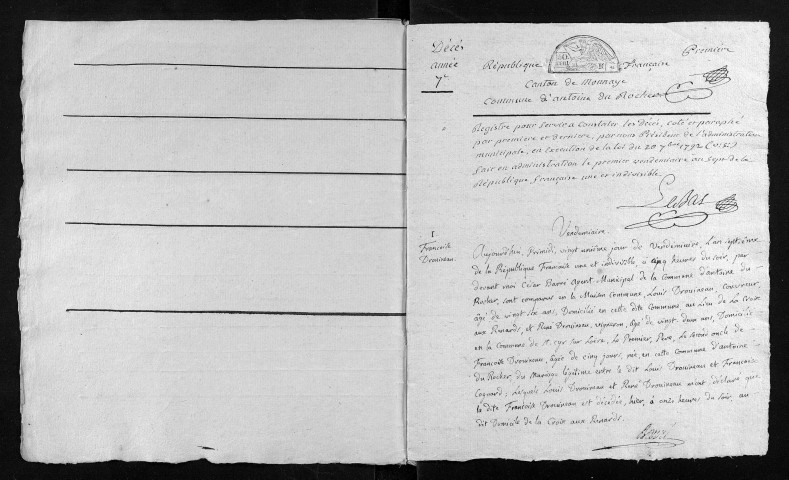 Décés
année
7e
Première
République Française
Canton de Monnaye
Commune d'antoine du Rocher
Registre pour servir a constater les Décés, coté et paraphé
par premiere et derniere, par nous Président de l'administration
municipale, en execution de la loi du 20 7bre 1792 (v. st.)
fait en administration le premier vendemiaire an sept de la
République française une et indivisible.
LeBas
Vendemiaire.
1.
Francoise
Drouineau.
Aujourdhui, Primidi, vingt unième jour de Vendémiaire, l'an septième
de la République Francoise une et indivisible, à cinq heures du soir, par
devant moi César Barré agent Municipal de la Commune d'antoine du
Rocher, sont comparus en la Maison Commune, Louis Drouineau, couvreur,
âgé de vingt six ans, Domicilié en cette dite Commune au Lieu de La Croix
aux Renards, et René Drouineau, vigneron, âgé de vingt deux ans, Domicilié
en la Commune de St. Cyr sur Loire, Le Premier, Père, Le second oncle de
Francoise Drouineau, âgée de cinq jours, née, en cette Commune d'antoine
du Rocher, du Mariage légitime entre le dit Louis Drouineau et Francoise
Cognard; Lesquels Louis Drouineau et René Drouineau m'ont déclaré que
la dite Francoise Drouineau est décédée, hier, à onze heures du soir, au
dit Domicile de la Croix aux Renards.
Barré